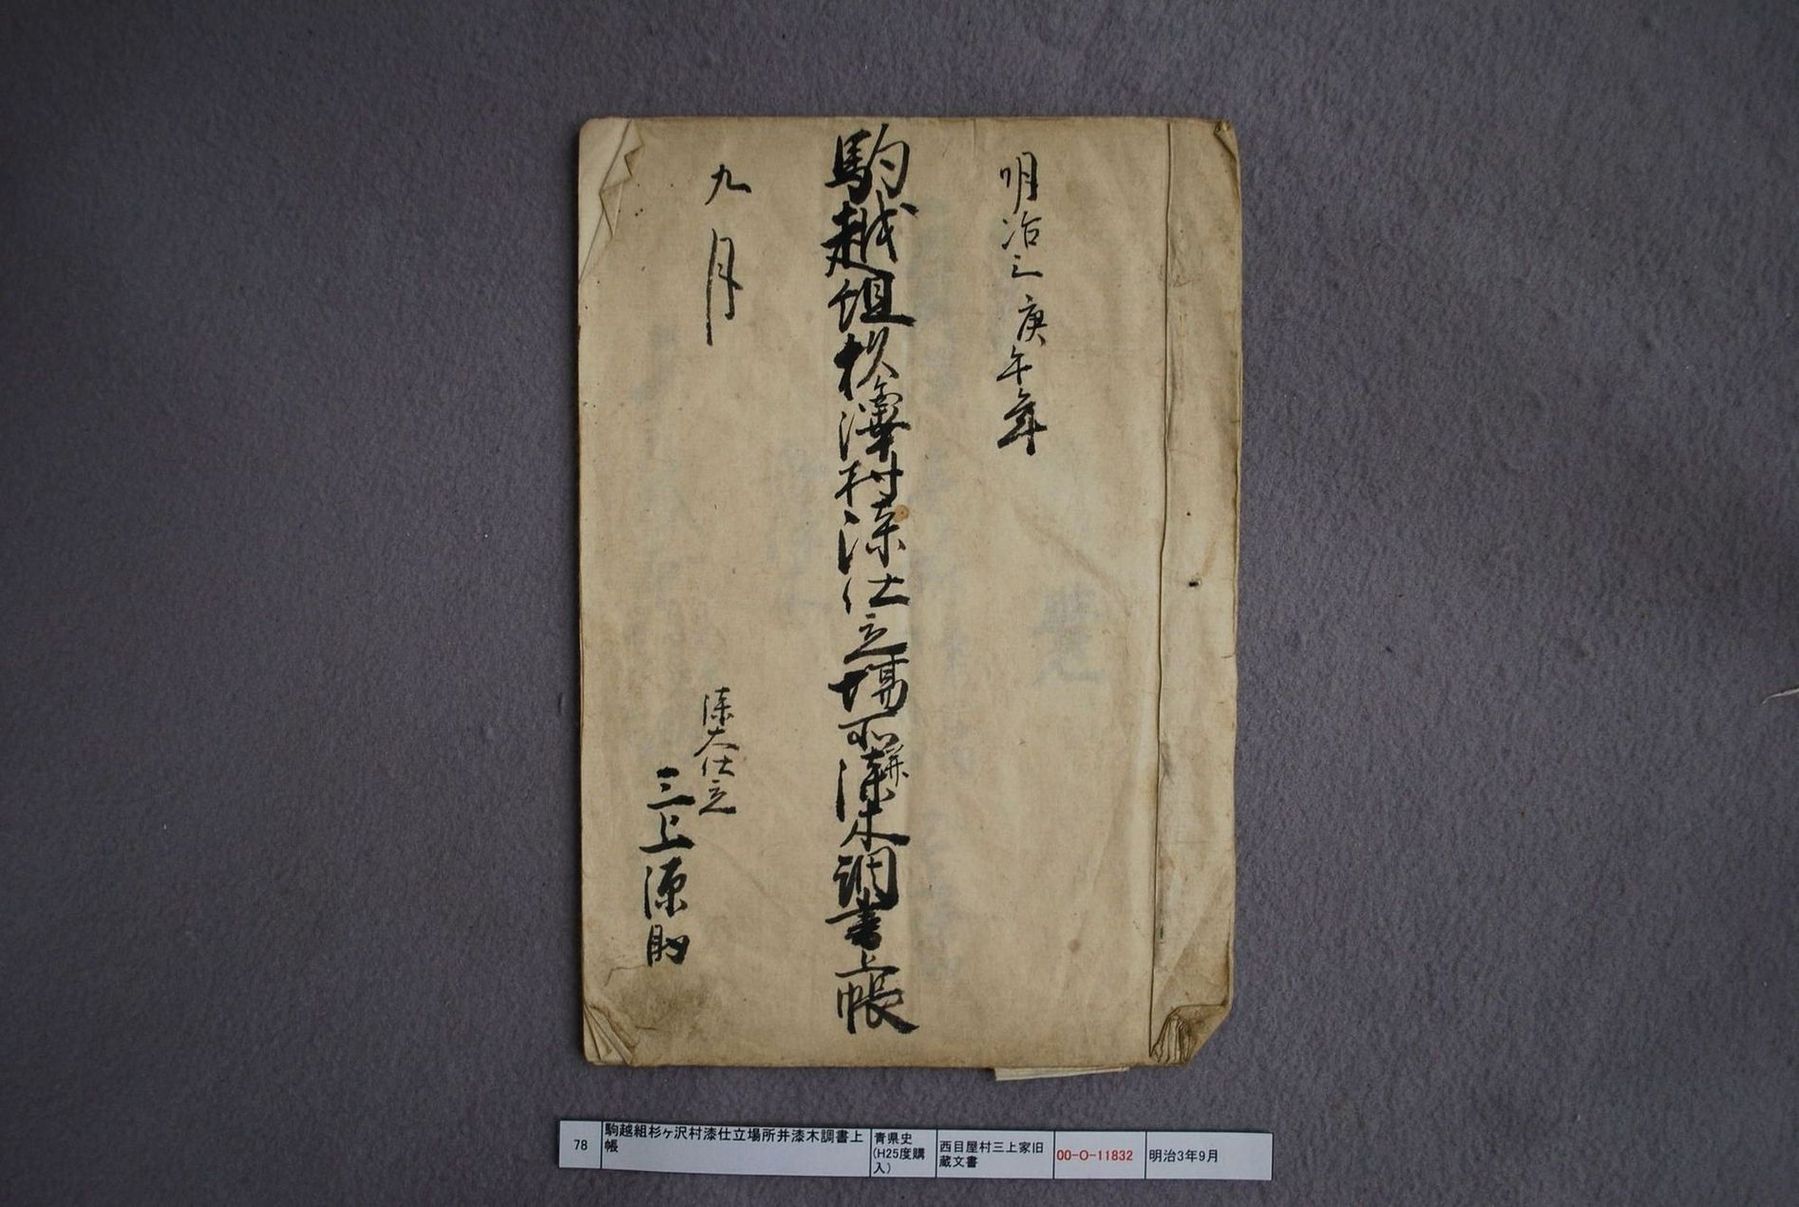 明治三庚午年
駒越組杦ヶ澤村漆仕立場所并漆木調書上帳
九月
漆木仕立
三上源助
78
駒越組杉ヶ沢村漆仕立場所并漆木調書上
帳
青県史
(H25度購
入)
西目屋村三上家旧
蔵文書
00-O-11832
明治3年9月